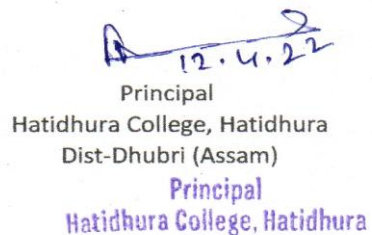 12.4.22
Principal
Hatidhura College, Hatidhura
Dist-Dhubri (Assam)
Principal
Hatidhura College, Hatidhura